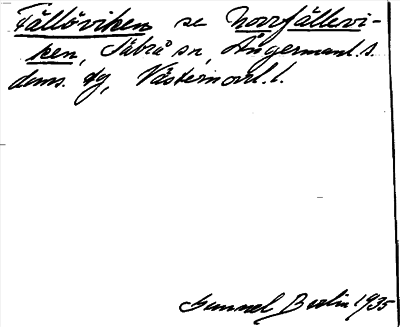 Fällöviken se Norrfällevi-
ken, Säbrå sn, Ångermanl. s.
doms. tg, Västernorrl. l.
Gunnel Berlin 1935